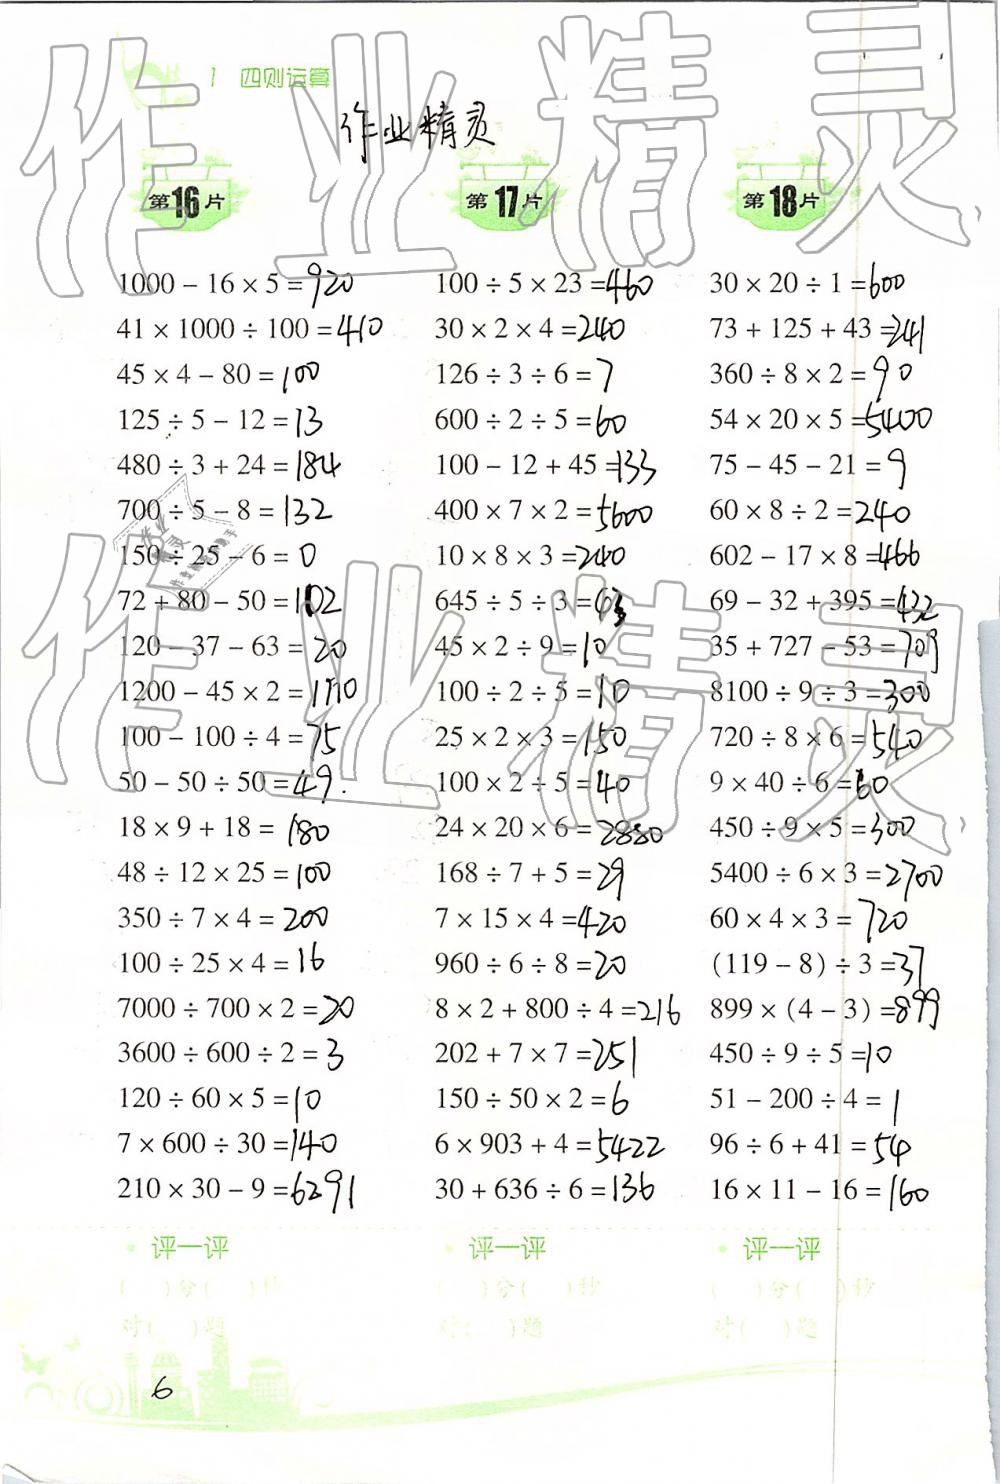 1 四则运算
作业精灵
第16片
1000 − 16 × 5 = 920
41 × 1000 ÷ 100 = 410
45 × 4 − 80 = 100
125 ÷ 5 − 12 = 13
480 ÷ 3 + 24 = 184
700 ÷ 5 − 8 = 132
150 ÷ 25 − 6 = 0
72 + 80 − 50 = 102
120 − 37 − 63 = 20
1200 − 45 × 2 = 1110
100 − 100 ÷ 4 = 75
50 − 50 ÷ 50 = 49.
18 × 9 + 18 = 180
48 ÷ 12 × 25 = 100
350 ÷ 7 × 4 = 200
100 ÷ 25 × 4 = 16
7000 ÷ 700 × 2 = 20
3600 ÷ 600 ÷ 2 = 3
120 ÷ 60 × 5 = 10
7 × 600 ÷ 30 = 140
210 × 30 − 9 = 6291
评一评
( )分( )秒
对( )题
第17片
100 ÷ 5 × 23 = 460
30 × 2 × 4 = 240
126 ÷ 3 ÷ 6 = 7
600 ÷ 2 ÷ 5 = 60
100 − 12 + 45 = 133
400 × 7 × 2 = 5600
10 × 8 × 3 = 240
645 ÷ 5 ÷ 3 = 43
45 × 2 ÷ 9 = 10
100 ÷ 2 ÷ 5 = 10
25 × 2 × 3 = 150
100 × 2 ÷ 5 = 40
24 × 20 × 6 = 2880
168 ÷ 7 + 5 = 29
7 × 15 × 4 = 420
960 ÷ 6 ÷ 8 = 20
8 × 2 + 800 ÷ 4 = 216
202 + 7 × 7 = 251
150 ÷ 50 × 2 = 6
6 × 903 + 4 = 5422
30 + 636 ÷ 6 = 136
评一评
( )分( )秒
对( )题
第18片
30 × 20 ÷ 1 = 600
73 + 125 + 43 = 241
360 ÷ 8 × 2 = 90
54 × 20 × 5 = 5400
75 − 45 − 21 = 9
60 × 8 ÷ 2 = 240
602 − 17 × 8 = 466
69 − 32 + 395 = 432
35 + 727 − 53 = 709
8100 ÷ 9 ÷ 3 = 300
720 ÷ 8 × 6 = 540
9 × 40 ÷ 6 = 60
450 ÷ 9 × 5 = 300
5400 ÷ 6 × 3 = 2700
60 × 4 × 3 = 720
(119 − 8) ÷ 3 = 37
899 × (4 − 3) = 899
450 ÷ 9 ÷ 5 = 10
51 − 200 ÷ 4 = 1
96 ÷ 6 + 41 = 54
16 × 11 − 16 = 160
评一评
( )分( )秒
对( )题
6
作业精灵
作业精灵